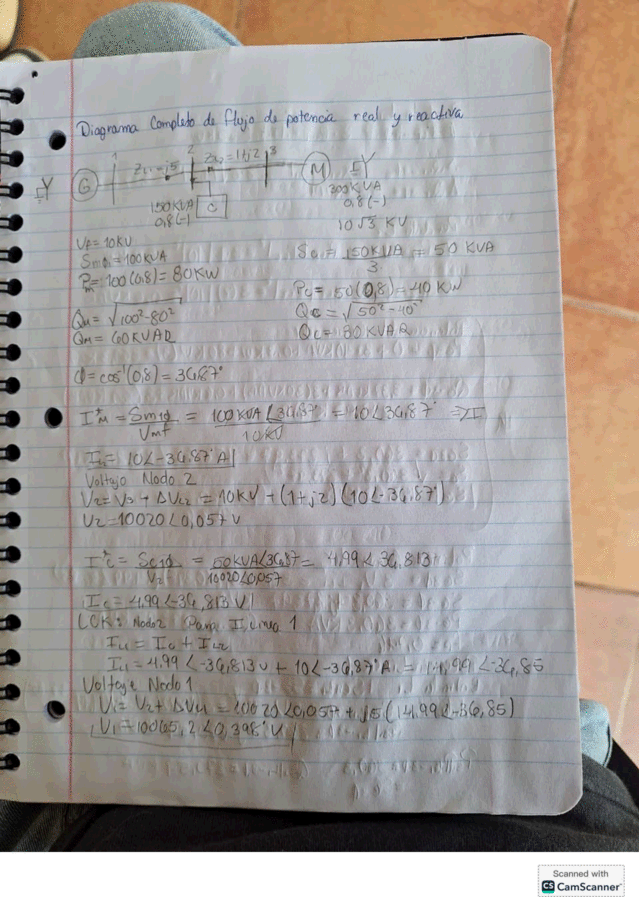 Diagrama Completo de flujo de potencia real y reactiva
1 2 3
ZL1=j5 ZL2=1+j2
G M
150KVA C 300KVA
0,8(-) 0,8(-)
10√3 KV
Vf=10KV
Sm1φ=100KVA Sc1φ=150KVA/3=50 KVA
Pm=100(0,8)=80KW Pc=50(0,8)=40 KW
Qm=√100²-80² Qc=√50²-40²
Qm=60KVAR Qc=30KVAR
φ=cos⁻¹(0,8)=36,87°
I*M=Sm1φ/Vmf=100KVA∠36,87°/10KV=10∠36,87°
Im=10∠-36,87°A
Voltaje Nodo 2
V2=V3+ΔVL2=10KV+(1+j2)(10∠-36,87°)
V2=10020∠0,057 V
I*c=Sc1φ/V2f=50KVA∠36,87/10020∠0,057=4,99∠36,813
Ic=4,99∠-36,813 V
LCK: Nodo2 Para I Linea 1
IL1=Ic+IL2
IL1=4,99∠-36,813v+10∠-36,87°A=14,99∠-36,85
Voltaje Nodo1
V1=V2+ΔVL1=10020∠0,057+j5(14,99∠-36,85)
V1=10065,2∠0,398°V
Scanned with
CS CamScanner